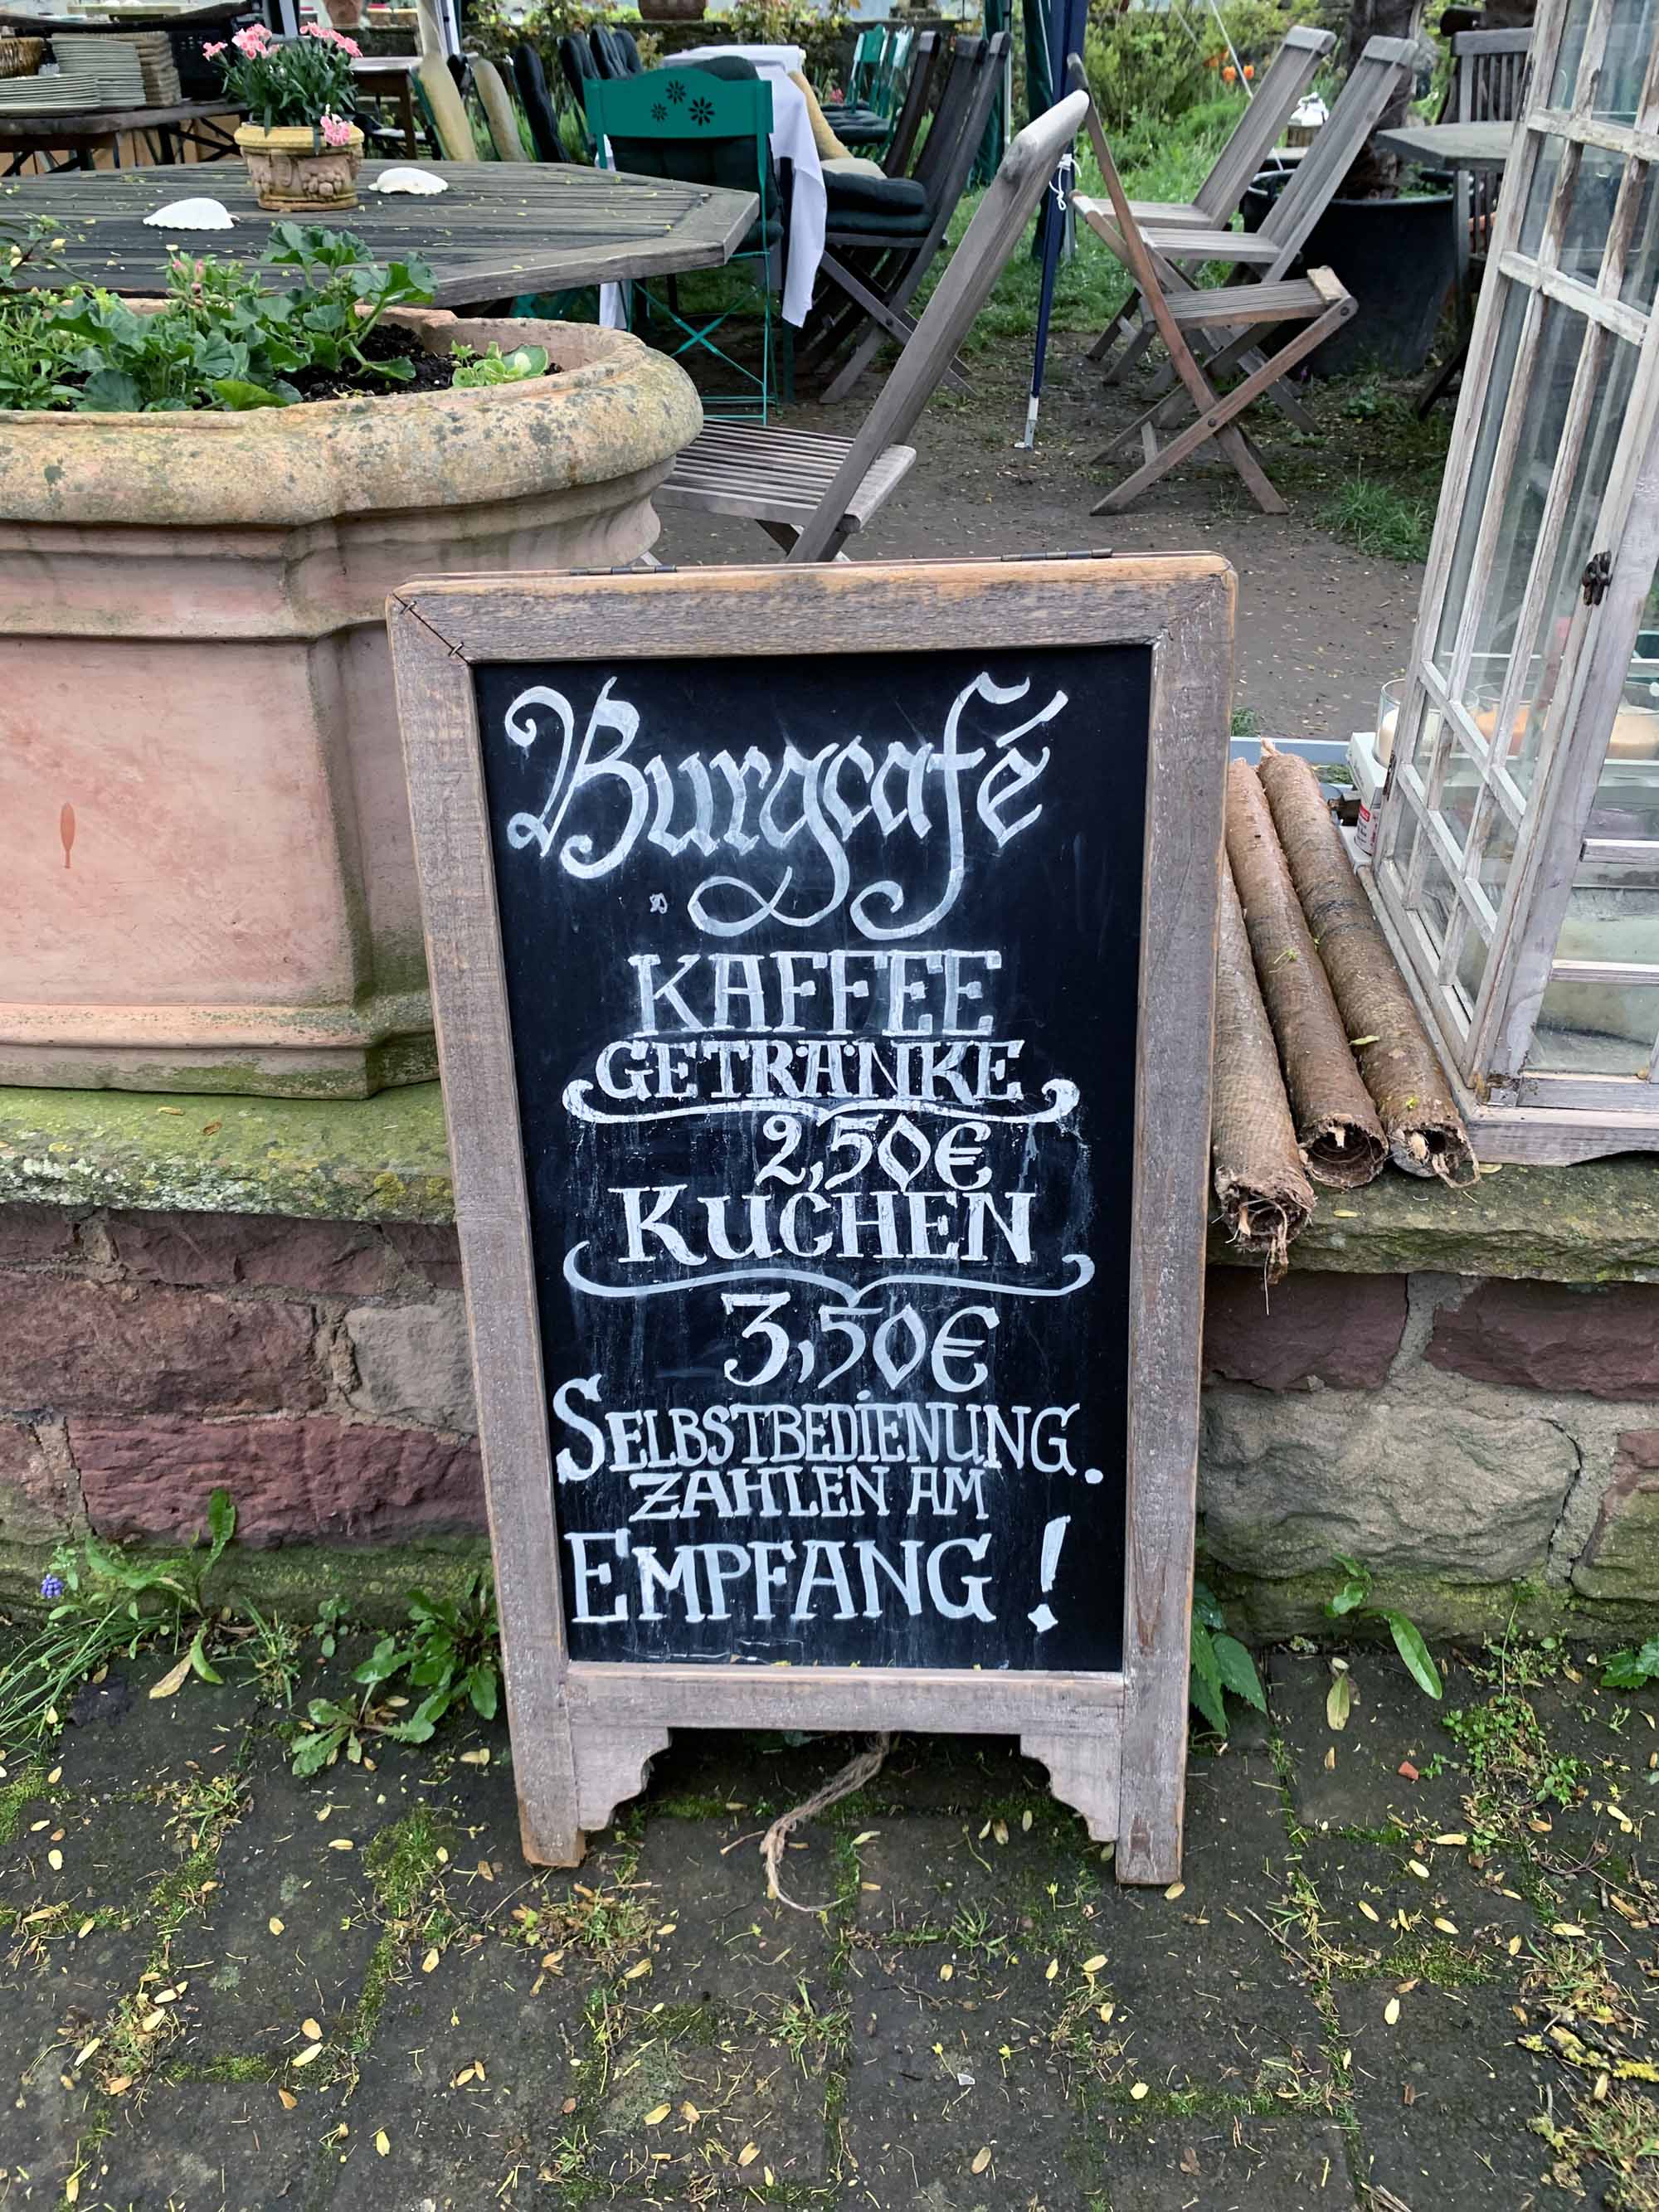 Burgcafé
KAFFEE
GETRÄNKE
2,50€
KUCHEN
3,50€
SELBSTBEDIENUNG.
ZAHLEN AM
EMPFANG!